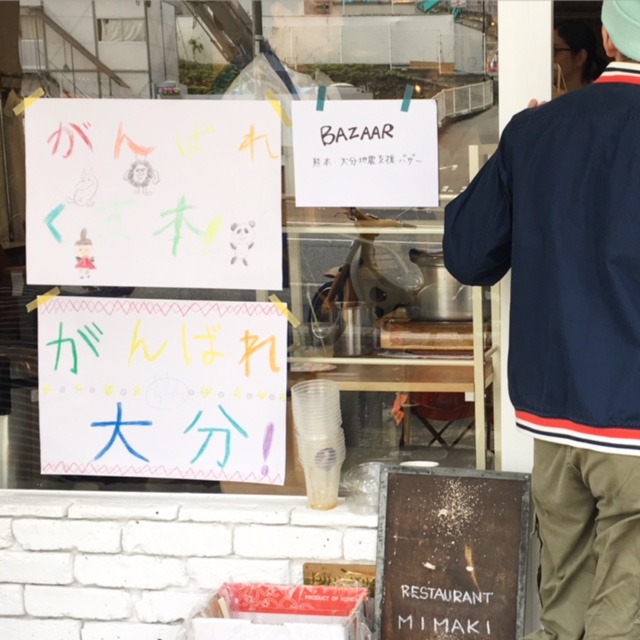 がんばれ
くま本！
がんばれ
大分！
BAZAAR
熊本・大分地震支援バザー
RESTAURANT
MIMAKI